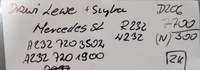 Drzwi Lewe + Szyba D206
Mercedes SL R232 7700
A232 720 3502 4232 (N) 300
A232 720 1900 RK